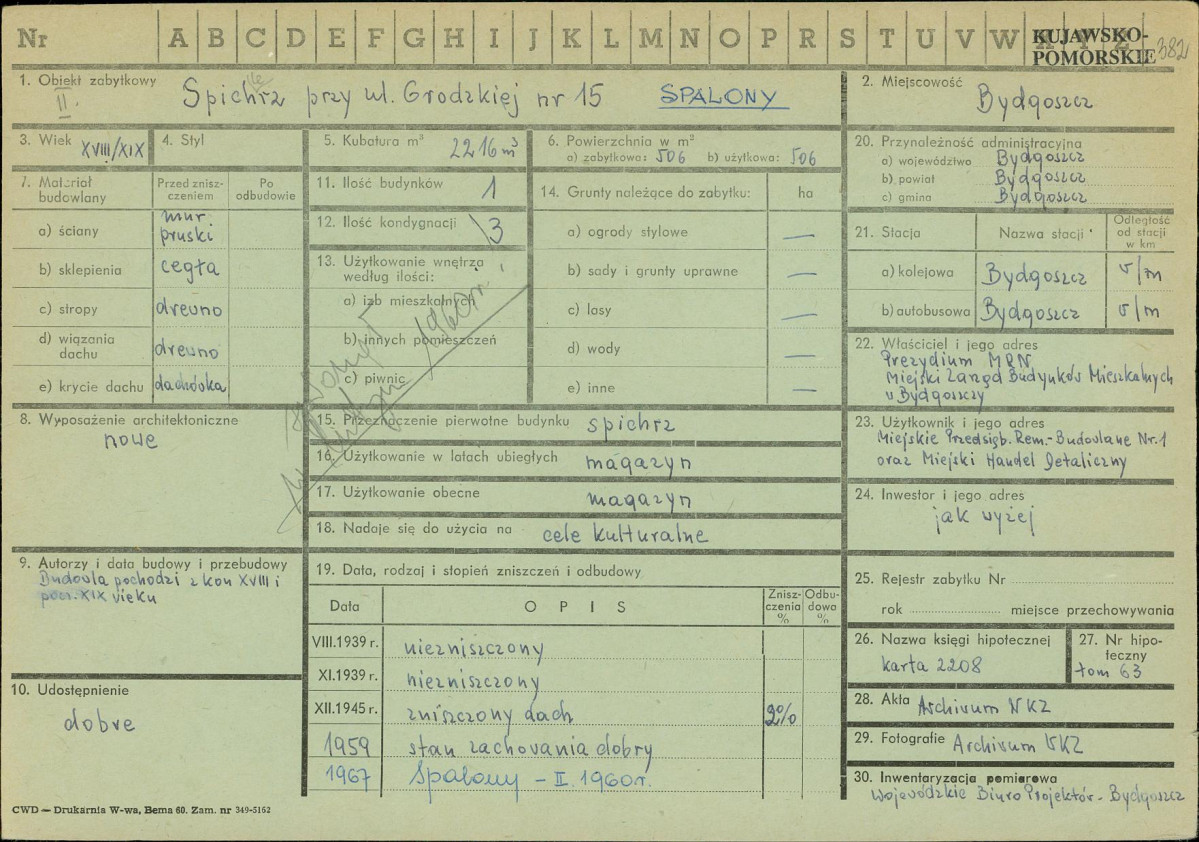 Nr A B C D E F G H I J K L M N O P R S T U V W X Y Z
KUJAWSKO-
POMORSKIE 382
1. Obiekt zabytkowy
II. Spichrz przy ul. Grodzkiej nr 15 SPALONY
2. Miejscowość
Bydgoszcz
3. Wiek XVIII/XIX
4. Styl
5. Kubatura m³ 2216 m³
6. Powierzchnia w m²
a) zabytkowa: 506 b) użytkowa: 506
7. Materiał budowlany
Przed zniszczeniem
Po odbudowie
a) ściany mur pruski
b) sklepienia cegła
c) stropy drewno
d) wiązania dachu drewno
e) krycie dachu dachówka
8. Wyposażenie architektoniczne
nowe
9. Autorzy i data budowy i przebudowy
Budowla pochodzi z kon XVIII i
pocz. XIX wieku
10. Udostępnienie
dobre
11. Ilość budynków 1
12. Ilość kondygnacji 3
13. Użytkowanie wnętrza
według ilości:
a) izb mieszkalnych
b) innych pomieszczeń
c) piwnic
spalony
1960 r.
14. Grunty należące do zabytku: ha
a) ogrody stylowe —
b) sady i grunty uprawne —
c) lasy —
d) wody —
e) inne —
15. Przeznaczenie pierwotne budynku spichrz
16. Użytkowanie w latach ubiegłych magazyn
17. Użytkowanie obecne magazyn
18. Nadaje się do użycia na cele kulturalne
19. Data, rodzaj i stopień zniszczeń i odbudowy
Data OPIS Zniszczenia % Odbudowa %
VIII.1939 r. niezniszczony
XI.1939 r. niezniszczony
XII.1945 r. zniszczony dach 2%
1959 stan zachowania dobry
1967 Spalony – II. 1960 r.
20. Przynależność administracyjna
a) województwo Bydgoszcz
b) powiat Bydgoszcz
c) gmina Bydgoszcz
21. Stacja Nazwa stacji Odległość od stacji w km
a) kolejowa Bydgoszcz v/m
b) autobusowa Bydgoszcz v/m
22. Właściciel i jego adres
Prezydium MRN
Miejski Zarząd Budynków Mieszkalnych
w Bydgoszczy
23. Użytkownik i jego adres
Miejskie Przedsięb. Rem.-Budowlane Nr. 1
oraz Miejski Handel Detaliczny
24. Inwestor i jego adres
jak wyżej
25. Rejestr zabytku Nr
rok miejsce przechowywania
26. Nazwa księgi hipotecznej
karta 2208
27. Nr hipoteczny
tom 63
28. Akta Archiwum WKZ
29. Fotografie Archiwum WKZ
30. Inwentaryzacja pomiarowa
Wojewódzkie Biuro Projektów - Bydgoszcz
CWD — Drukarnia W-wa, Bema 60. Zam. nr 349-5162